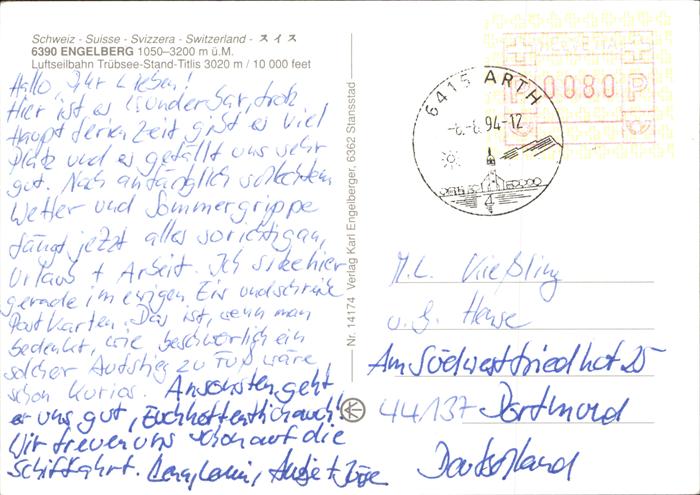 Schweiz - Suisse - Svizzera - Switzerland - スイス
6390 ENGELBERG 1050–3200 m ü.M.
Luftseilbahn Trübsee-Stand-Titlis 3020 m / 10 000 feet
Hallo, Ihr Lieben!
Hier ist es wunderbar, trotz
Haupt ferienzeit gibt es viel
Platz und es gefällt uns sehr
gut. Nach anfänglich schlechtem
Wetter und Sommergrippe
fängt jetzt alles so richtig an,
Urlaub + Arbeit. Ich sitze hier
gerade im ewigen Eis und schreibe
Postkarten. Das ist, wenn man
bedenkt, wie beschwerlich ein
solcher Aufstieg zu Fuß wäre
schon kurios. Ansonsten geht
es uns gut, Euch hoffentlich auch!
Wir freuen uns schon auf die
Schiffahrt.
Nr. 14174 Verlag Karl Engelberger, 6362 Stansstad
HELVETIA
0080
P P
6415 ARTH
-8.-8.94-12
4
M.L. Kießling
u. G. Hense
Am Südwestfriedhof 25
44137 Dortmund
Deutschland